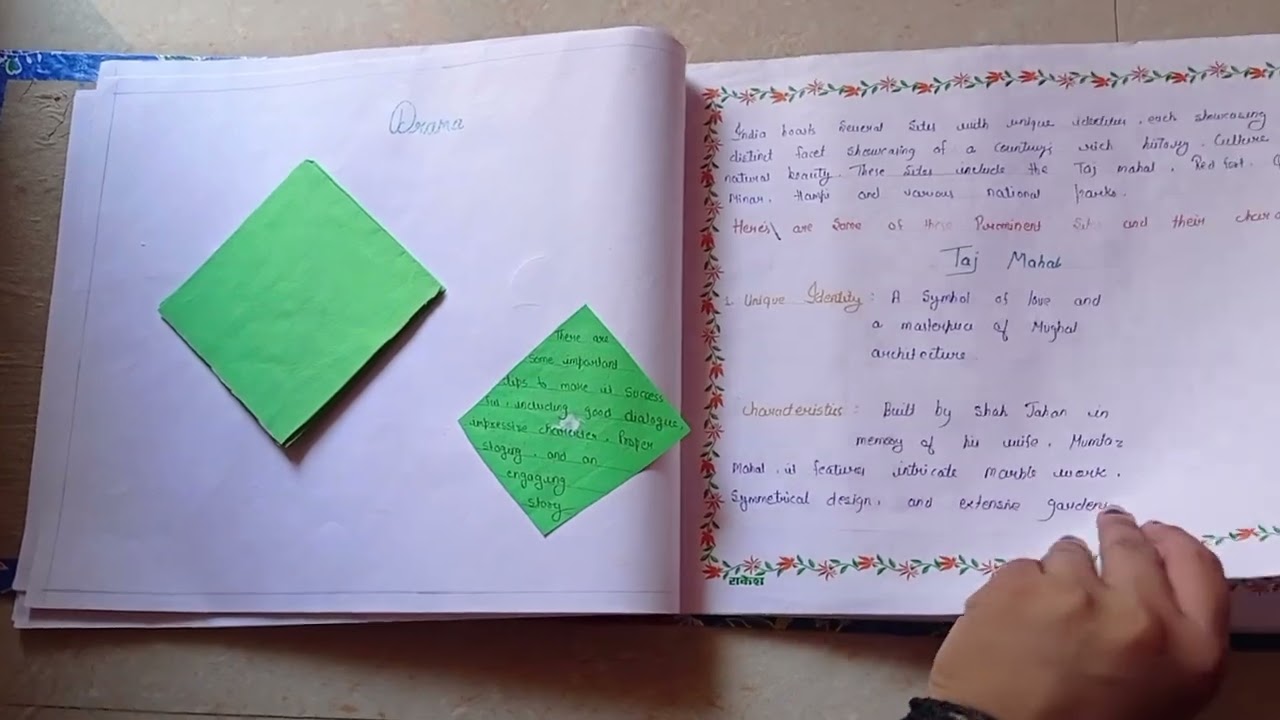 Drama
There are
some important
tips to make it success
ful, including good dialogue,
impressive character, Proper
staging, and an
engaging
story
India boasts several sites with unique identities, each showcasing
distinct facet showcasing of a country's rich history. Culture
natural beauty. These sites include the Taj mahal, Red fort.
Minar, Hampi and various national parks.
Here's are some of these Prominent Sites and their
Taj Mahal
1. Unique Identity : A Symbol of love and
a masterpiece of Mughal
architecture
characteristics : Built by Shah Jahan in
memory of his wife, Mumtaz
Mahal, it features intricate marble work,
Symmetrical design, and extensive gardens
राकेश